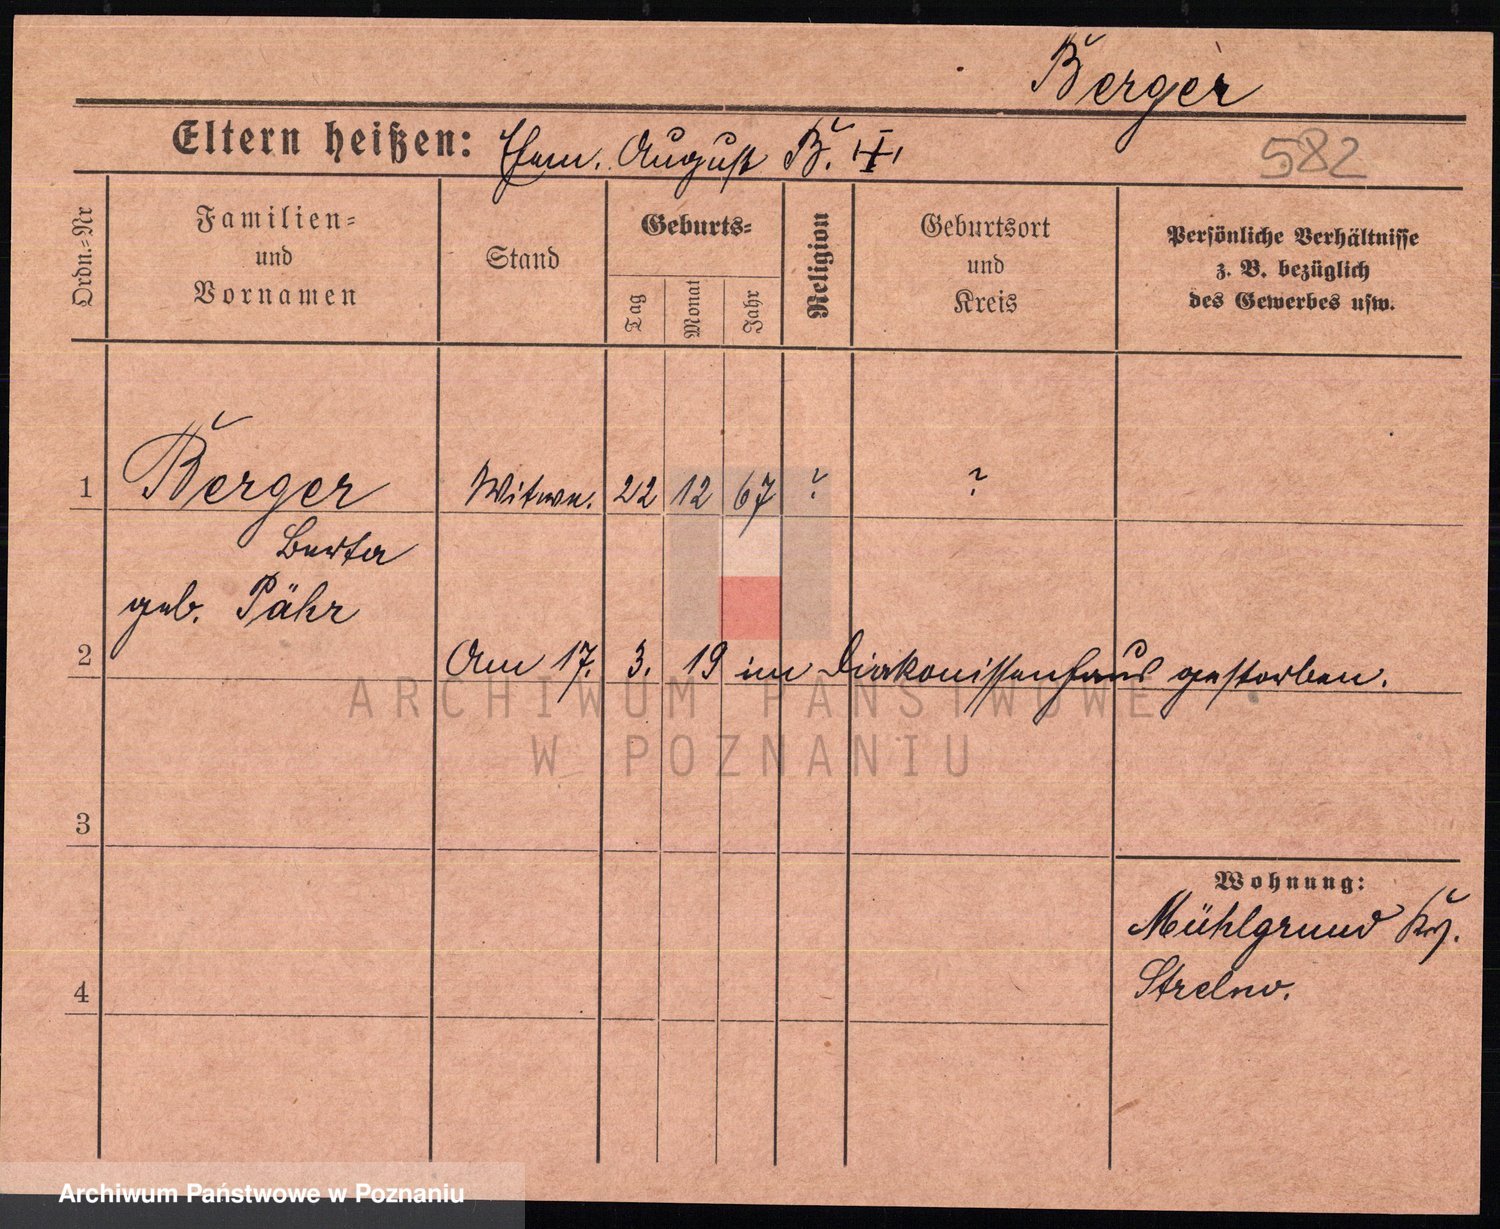 Berger
Eltern heißen: Ehem. August B.
582
Ordn.=Nr
Familien=
und
Vornamen
Stand
Geburts=
Tag
Monat
Jahr
Religion
Geburtsort
und
Kreis
Persönliche Verhältnisse
z. B. bezüglich
des Gewerbes usw.
1 Berger Witwe. 22 12 67 ? ?
Berta
geb. Pähr
2 Am 17. 3. 19 im Diakonissenhaus gestorben.
ARCHIWUM PAŃSTWOWE
W POZNANIU
3
Wohnung:
Mühlgrund Krs.
Strelno.
4
Archiwum Państwowe w Poznaniu